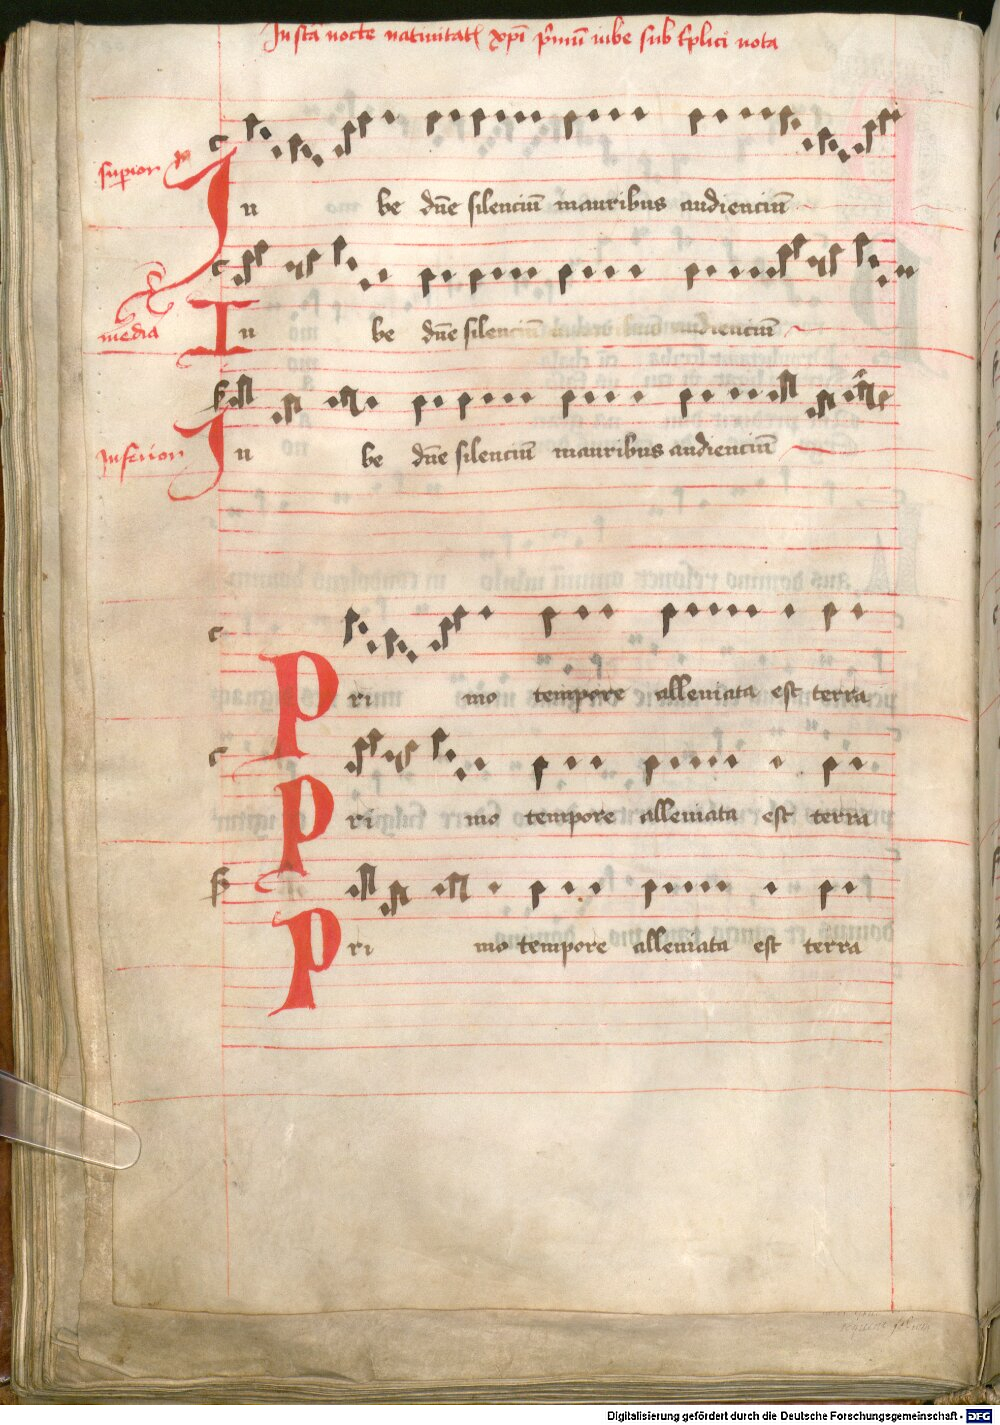 In scā nocte natiuitatꝭ xpī p̄mū iube sub t̄plici nota
supior
Iu be dn̄e silenciū inauribus audienciū
media
Iu be dn̄e silenciū dienciū
Inferior
Iu be dn̄e silenciū inauribus audienciū
Pri mo tempore alleuiata est terra
Pri mo tempore alleuiata est terra
Pri mo tempore alleuiata est terra
Digitalisierung gefördert durch die Deutsche Forschungsgemeinschaft - DFG